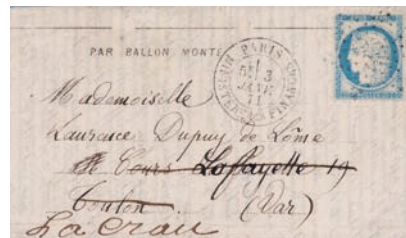 PAR BALLON MONTÉ
PARIS
5E 3
JANV
71
Mademoiselle
Laurence Dupuy de Lôme
Cours Lafayette 19
Toulon (Var)
La Crau